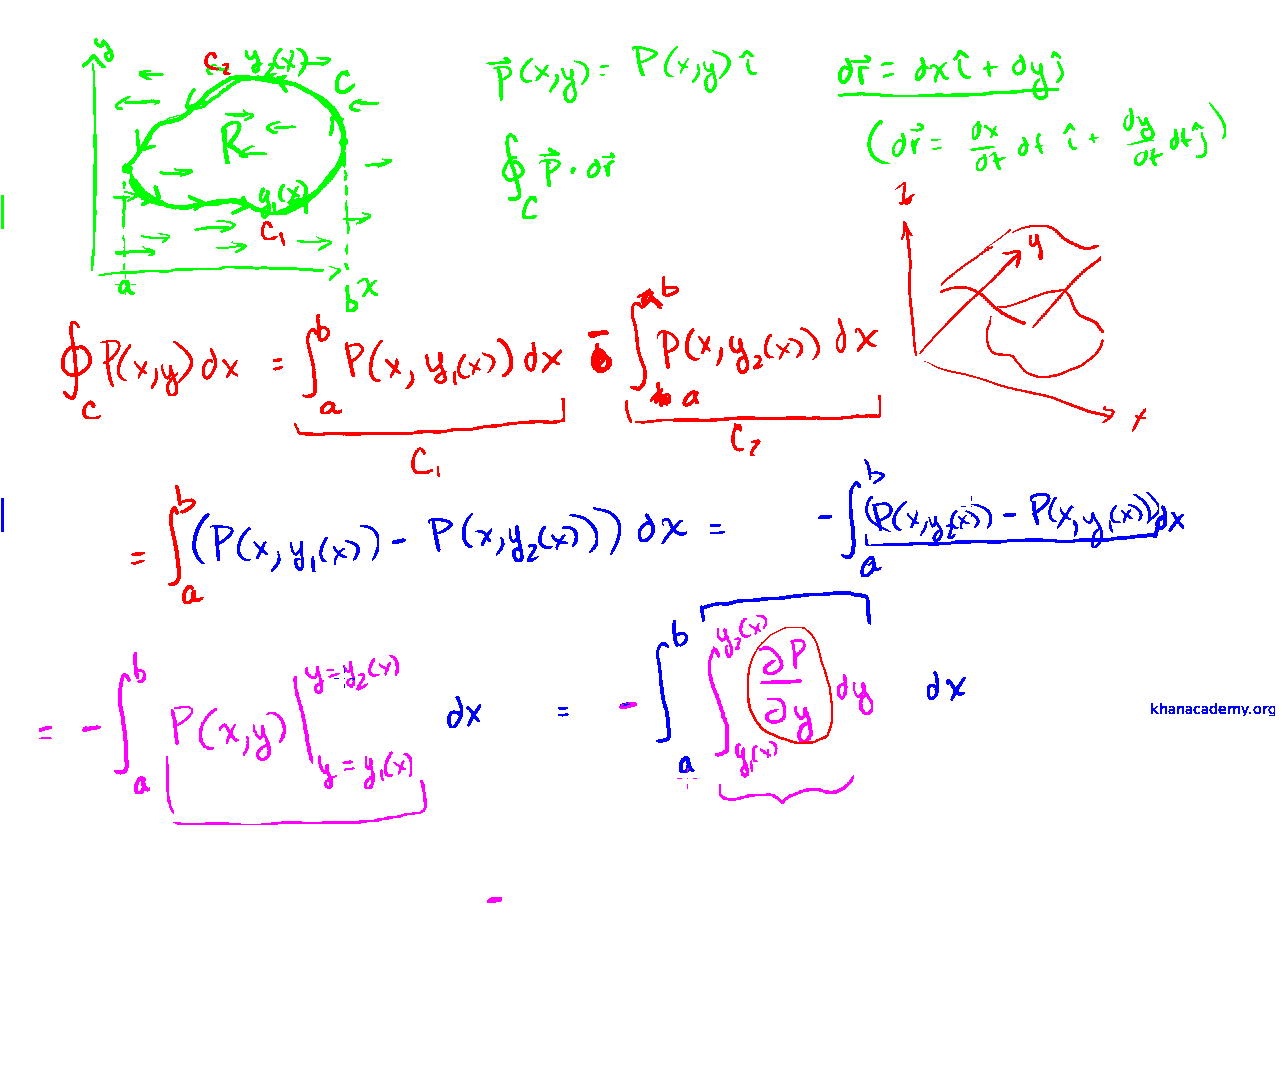 y
C₂ y₂(x)
C
R
y₁(x)
C₁
a
b x
p⃗(x,y) = P(x,y) î
dr⃗ = dx î + dy ĵ
(dr⃗ = dx/dt dt î + dy/dt dt ĵ)
∮_C p⃗ · dr⃗
z
y
x
∮_C P(x,y) dx = ∫_a^b P(x, y₁(x)) dx − ∫_a^b P(x, y₂(x)) dx
C₁
C₂
= ∫_a^b (P(x, y₁(x)) − P(x, y₂(x))) dx = − ∫_a^b (P(x, y₂(x)) − P(x, y₁(x))) dx
= − ∫_a^b P(x,y) |_{y = y₁(x)}^{y = y₂(x)} dx = − ∫_a^b ∫_{y₁(x)}^{y₂(x)} ∂P/∂y dy dx
khanacademy.org
−